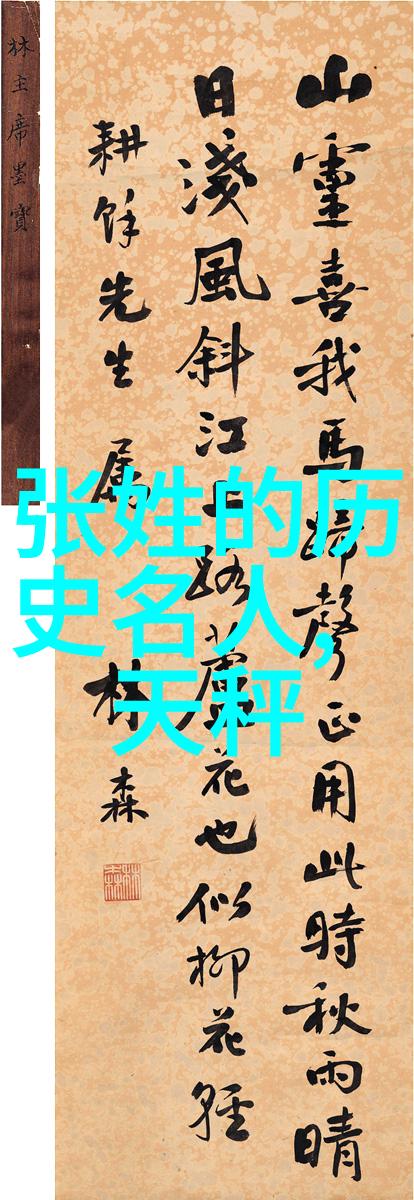 山靈喜我馬蹄聲正用此時秋雨晴
日淺風斜江上路蘆花也似柳花輕
耕餘先生屬 林森
林森
林主席墨寶
张姓的历
史名人,
天秤